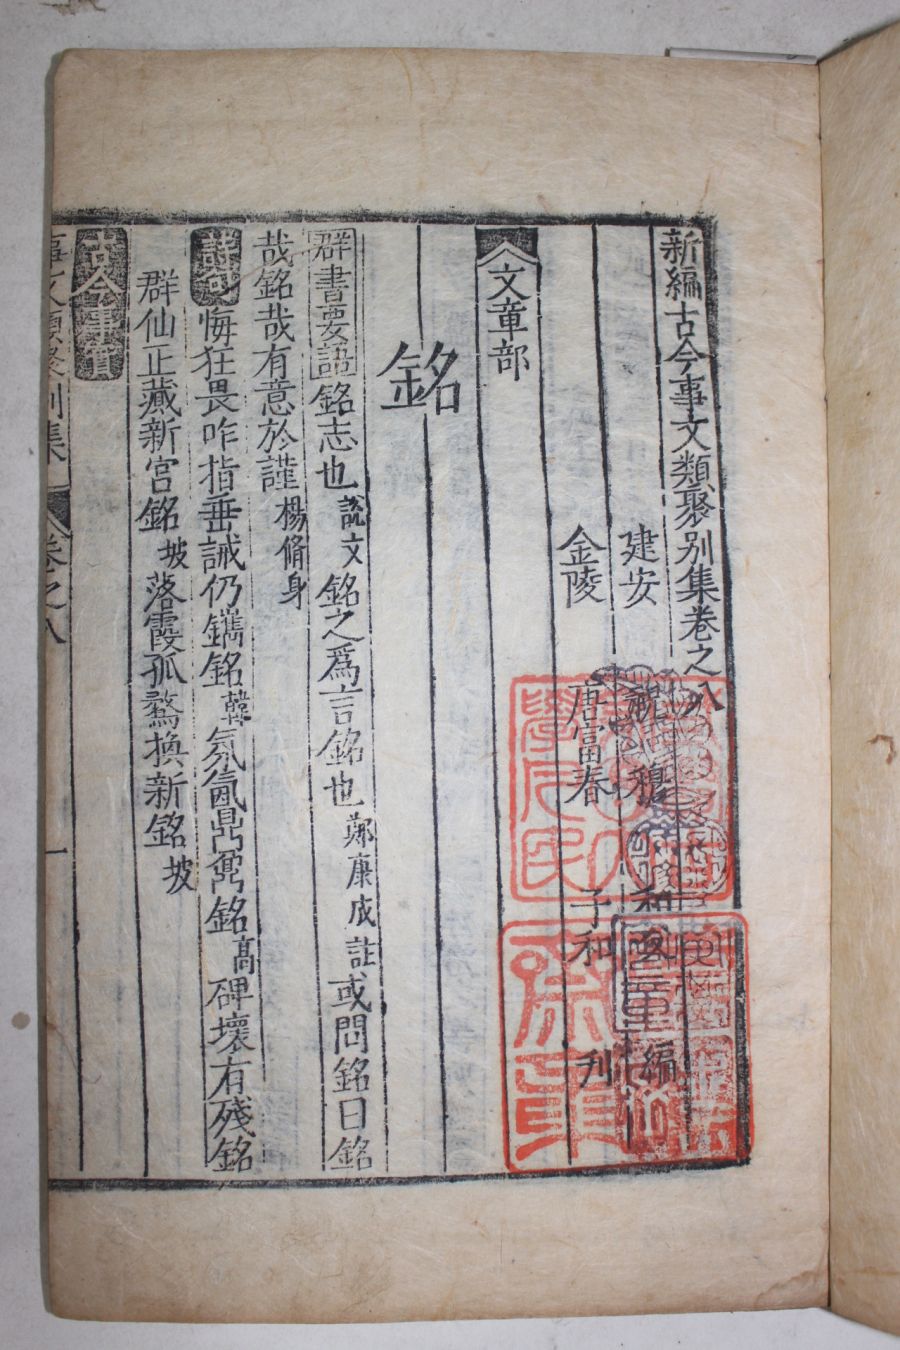 新編古今事文類聚別集卷之八
建安 祝穆 和父 編
金陵 唐富春 子和 刋
文章部
銘
群書要語 銘志也 說文 銘之爲言銘也 鄭康成註 或問銘曰銘
哉銘哉有意於謹 楊脩身
詩句 悔狂畏咋指垂誡仍鐫銘 韓 氛氳鼎鼐銘 高 碑壞有殘銘
群仙正藏新宮銘 坡 落霞孤鶩換新銘 坡
古今事實
事文類聚別集 卷之八 一